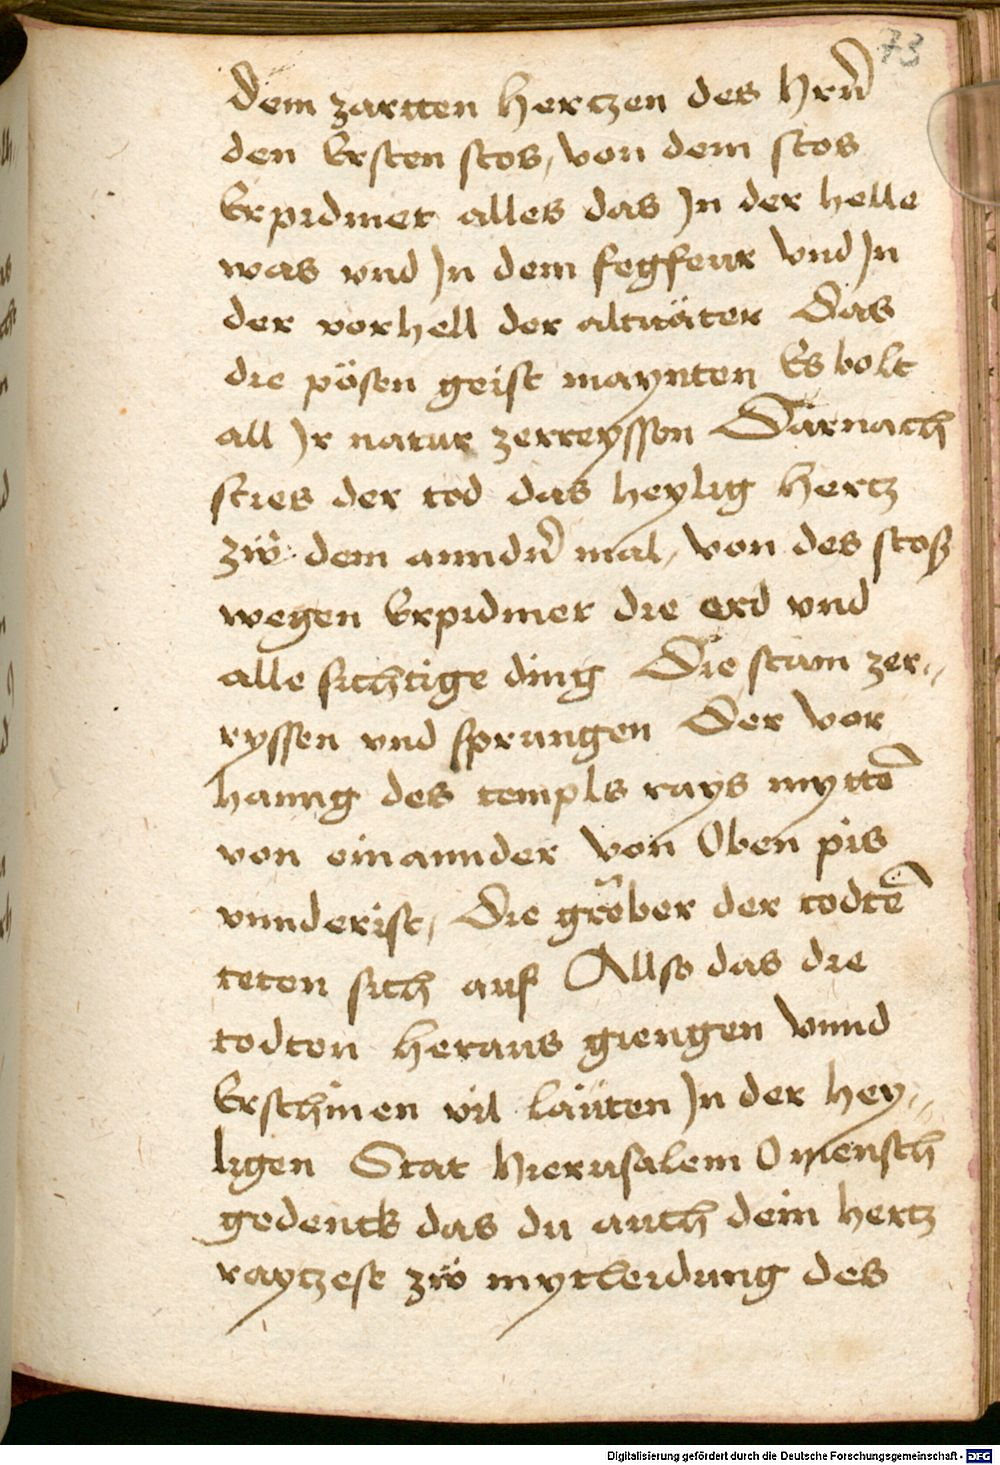 73
dem zartten hertzen des hrñ
den Ersten stos, von dem stos
Erpidmet alles das Jn der helle
was vnd Jn dem fegfeur vnd Jn
der vorhell der altuäter Das
die pösen geist maynten Es volt
all Jr natur zerreyssen Darnach
sties der tod das heylig hertz
zẅ dem anndñ mal, von des stoß
wegen Erpidmet die erd vnd
alle sichtige ding Die stain zer,,
ryssen vnd sprungen Der vor
hanng des templs rays myttē
von einannder von Oben pis
vnnderist, Die gröber der todtē
teten sich auf Allso das die
todten heraus giengen vnnd
Erschinen vil läüten Jn der hey,,
ligen Stat hierusalem O mensch
gedenck das du auch dein hertz
raytzest zẅ mytleidung des
Digitalisierung gefördert durch die Deutsche Forschungsgemeinschaft - DFG